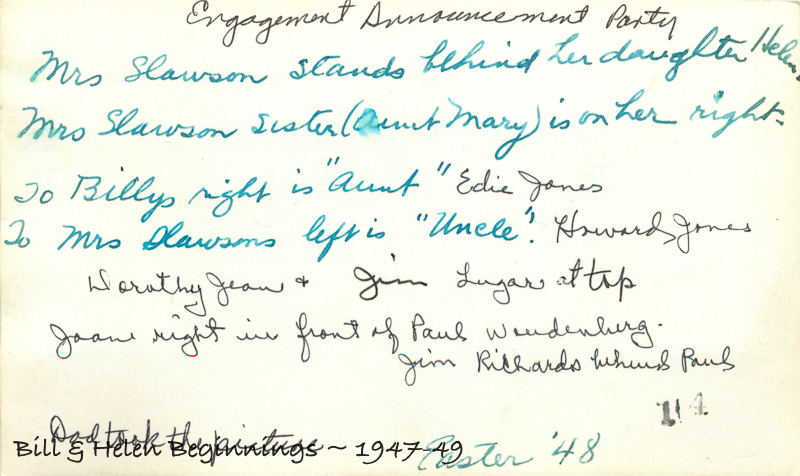 Engagement Announcement Party
Mrs Slawson stands behind her daughter Helen.
Mrs Slawson sister (Aunt Mary) is on her right.
To Billys right is "Aunt" Edie Jones
To Mrs Slawsons left is "Uncle". Howard Jones
Dorothy Jean & Jim Lugar at top
Joane right in front of Paul Woudenberg.
Jim Richards behind Paul
114
Dad took the picture
Bill & Helen Beginnings ~ 1947-49
Easter '48